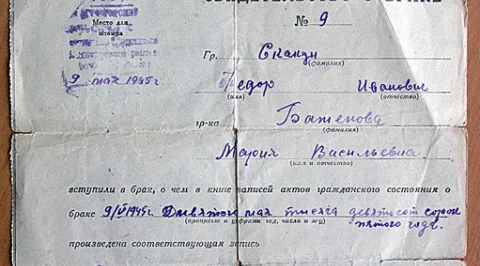 СВИДЕТЕЛЬСТВО О БРАКЕ
№ 9
Место для
штампа
9 мая 1945 г
Гр. Скакун
(фамилия)
Федор Иванович
(имя) (отчество)
гр-ка Баженова
(фамилия)
Мария Васильевна
(имя и отчество)
вступили в брак, о чем в книге записей актов гражданского состояния о
браке 9/V 1945г. Девятого мая тысяча девятьсот сорок
(прописью и цифрами год, число и мес.)
пятого года
произведена соответствующая запись